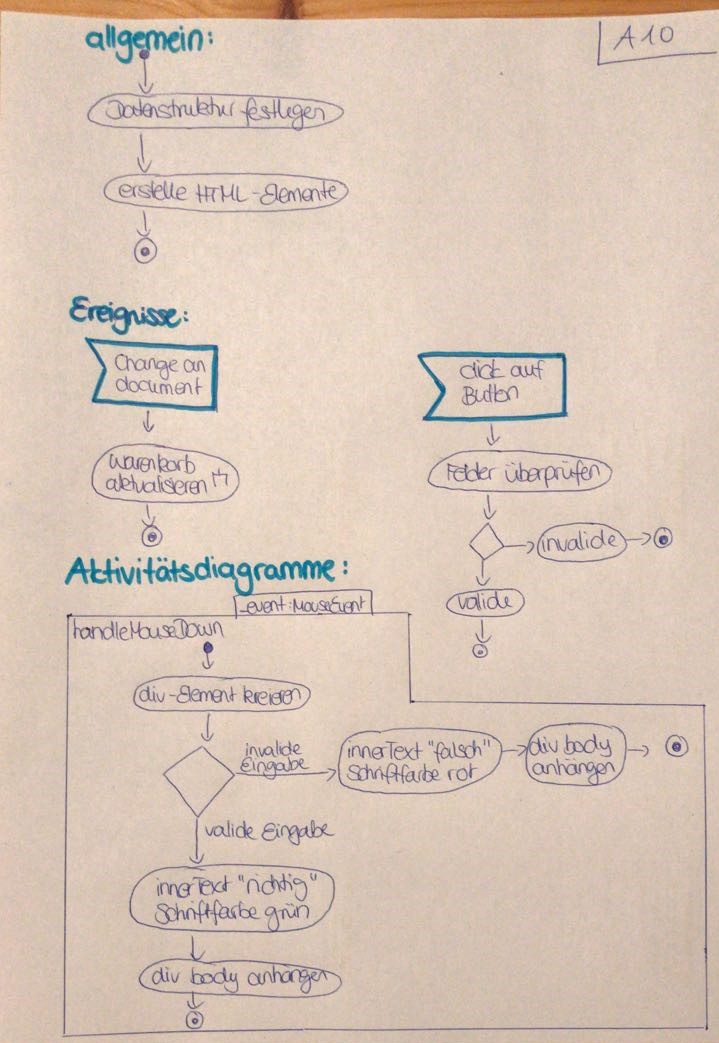 allgemein:
A10
Datenstruktur festlegen
erstelle HTML-Elemente
Ereignisse:
Change an
document
click auf
Button
warenkorb
aktualisieren
Felder überprüfen
invalide
valide
Aktivitätsdiagramme:
_event:MouseEvent
handleMouseDown
div-Element kreieren
invalide
Eingabe
innerText "falsch"
Schriftfarbe rot
div body
anhängen
valide Eingabe
innerText "richtig"
Schriftfarbe grün
div body anhängen